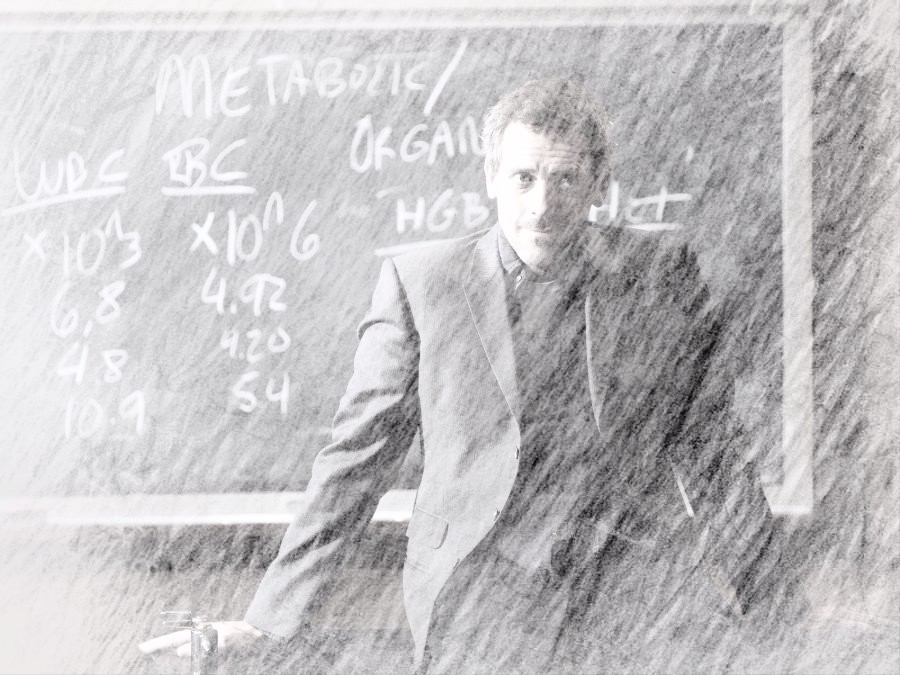 METABOLIC/
ORGAN
WBC RBC HGB HCT
×10^3 ×10^6
6.8 4.92
4.8 4.20
10.9 54